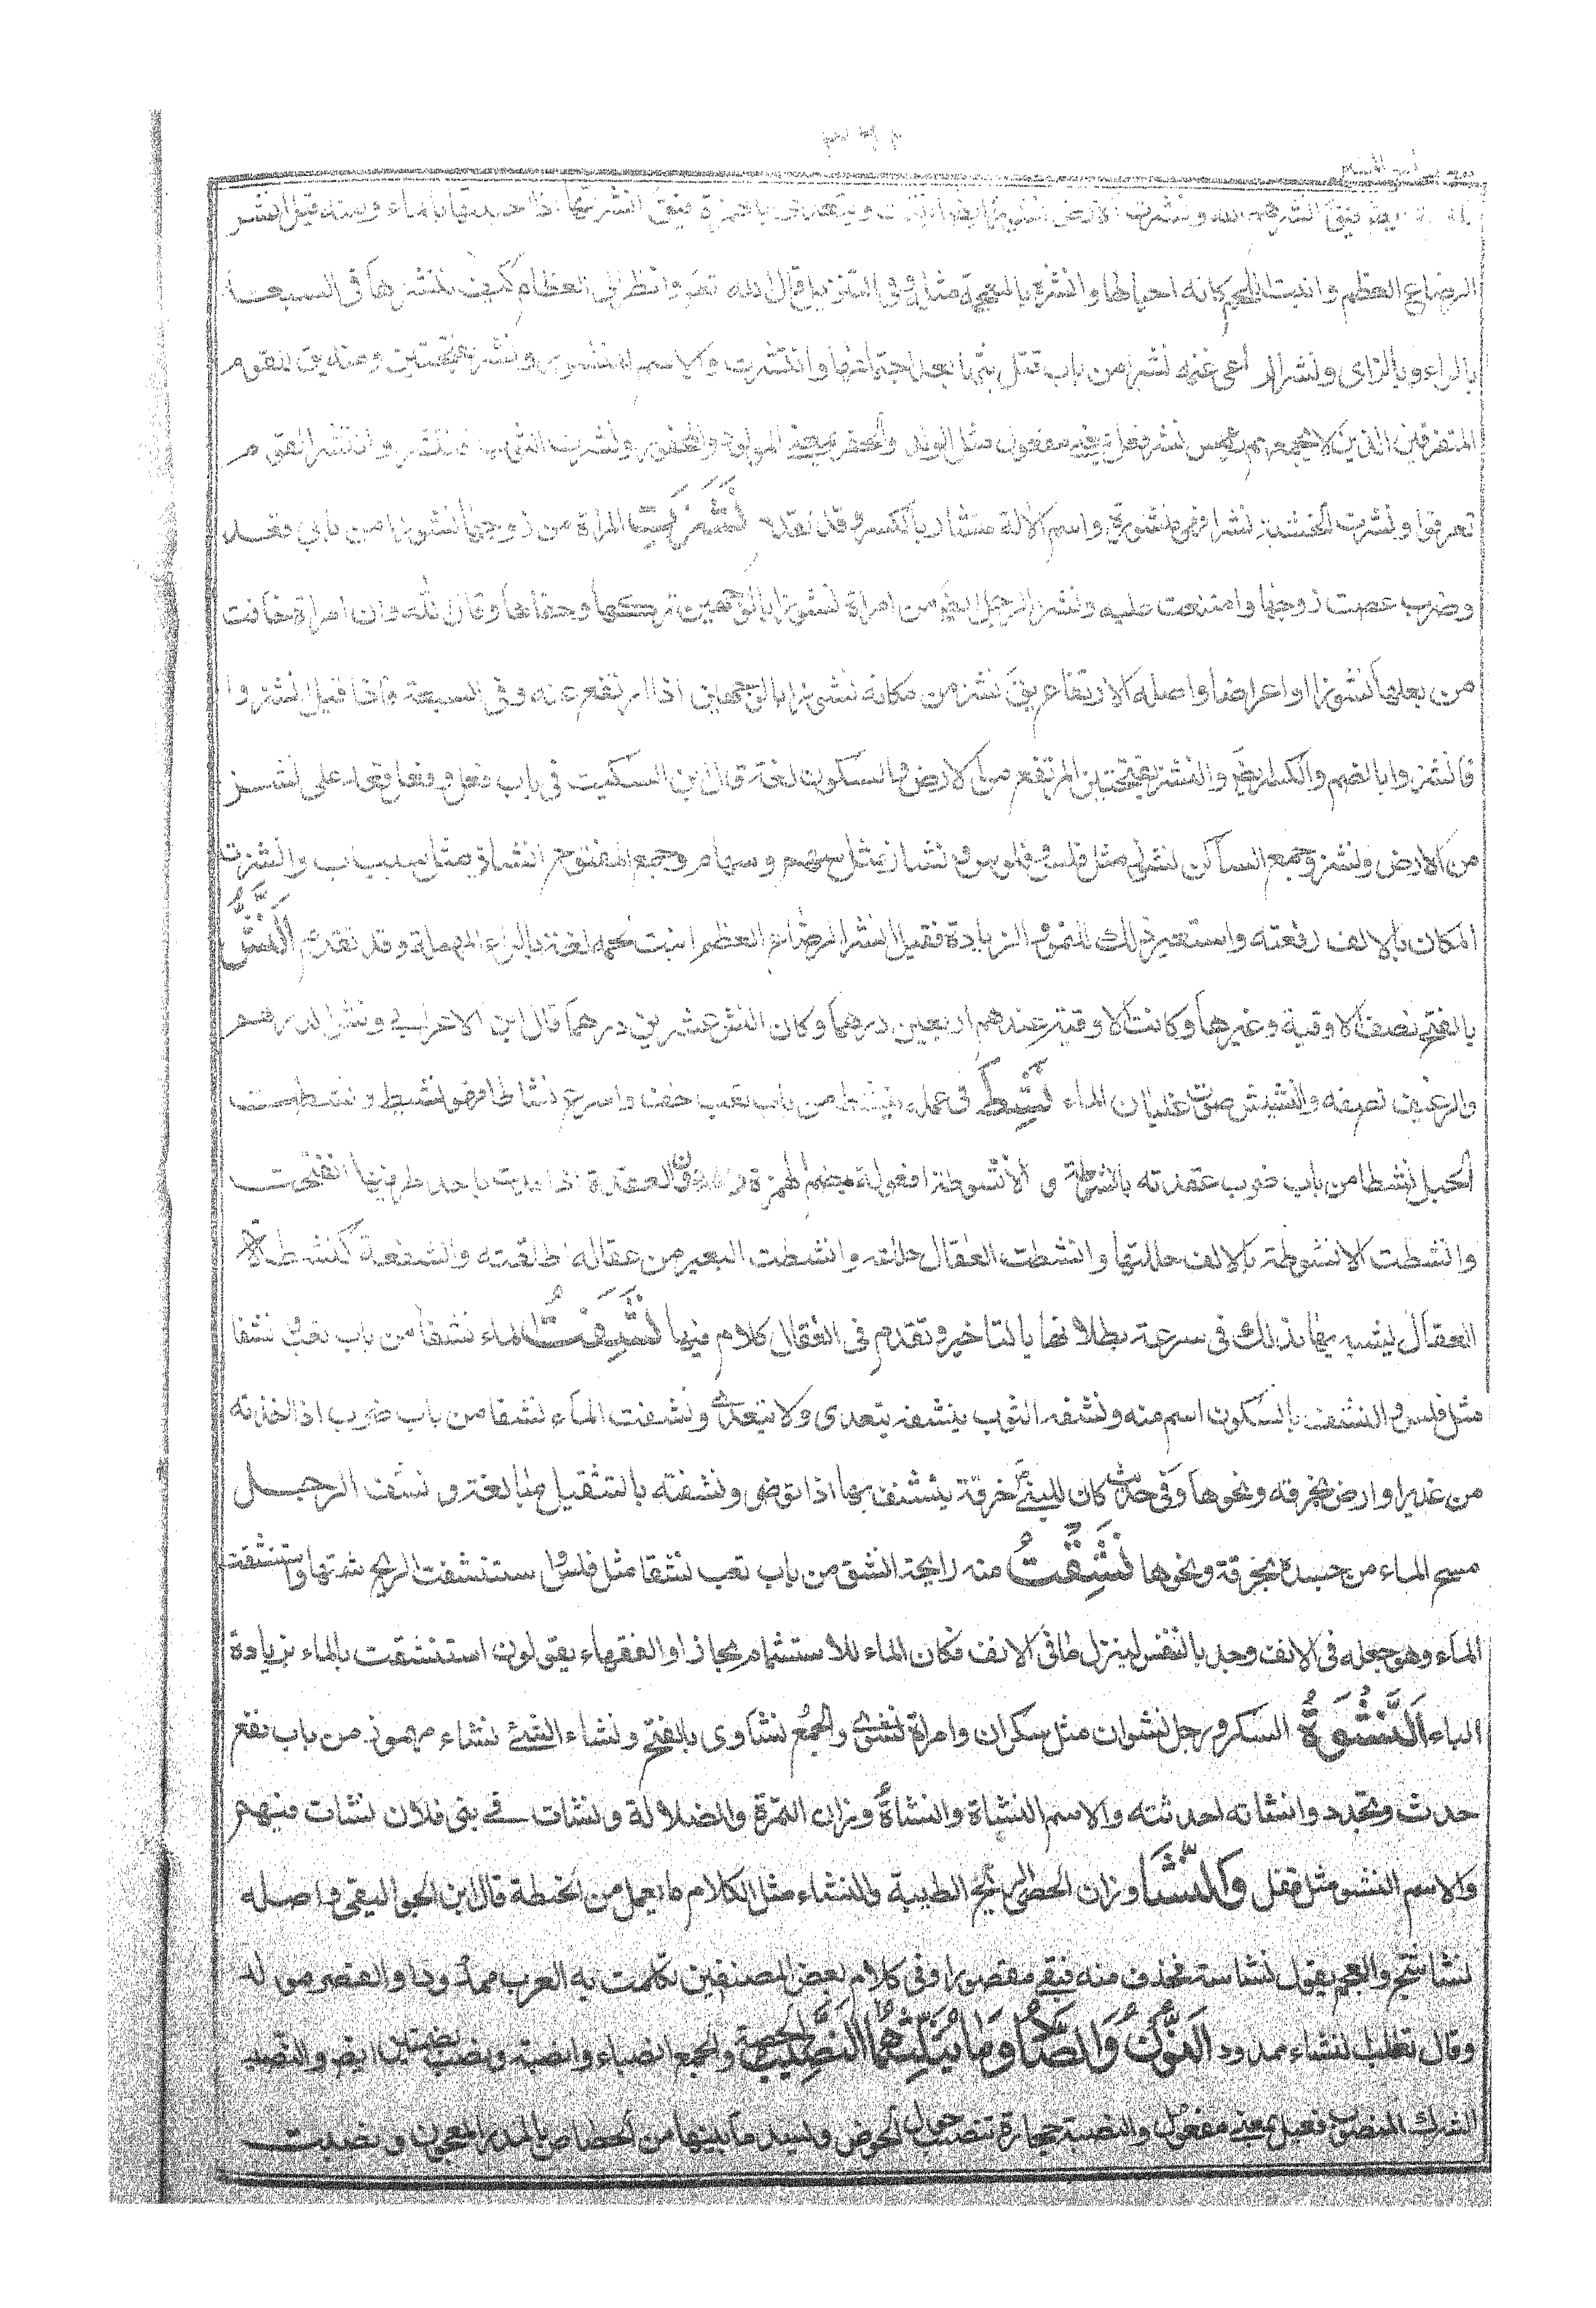 يتعدى ولا يتعدى فيق انشرهم الله ونشرت الارض نشورا ايضا حييت ويتعدى بالهمزة فيق انشرتها اذا احييتها بالماء ومنه قيل انشر
الرضاع العظم وانبت اللحم كانه احياها وانشزه بالمعجمة مثله وفى التنزيل قال الله تعه وانظر الى العظام كيف ننشزها فى السبعة
بالراء وبالزاى ونشر الراعى غنمه نشرا من باب قتل بثها بعد ان اواها وانتشرت والاسم النشر ونشر بفتحتين ومنه يق للقوم
المتفرقين الذين لا يجمعهم رئيس نشر فعل بمعنى مفعول مثل الولد والحفر بمعنى المولود والمحفور ونشرت الثوب فانتشر وانتشر القوم
تفرقوا ونشرت الخشبة نشرا فهى منشورة واسم الالة منشار بالكسر وقد تقدم نَشَزَتِ المراة من زوجها نشوزا من بابي قعد
وضرب عصت زوجها وامتنعت عليه ونشز الرجل ايضا من امراة نشوزا بالوجهين تركها وجفاها وقال الله وان امراة خافت
من بعلها نشوزا او اعراضا واصله الارتفاع يق نشز من مكانه نشوزا بالوجهين اذا ارتفع عنه وفى السبعة واذا قيل انشزوا
فانشزوا بالضم والكسر ايضا والنشز بفتحتين المرتفع من الارض والسكون لغة قال ابن السكيت فى باب فعل وفعل قعد على نشز
من الارض ونشز وجمع الساكن نشوز مثل فلس وفلوس ونشاز مثل سهم وسهام وجمع المفتوح انشاز مثل سبب اسباب وانشزت
المكان بالالف رفعته واستعير ذلك للنمو والزيادة فقيل انشز الرضاع العظم انبت لحمه لغة بالراء المهملة وقد تقدم اَلنَّشُّ
بالفتح نصف الاوقية وغيرها وكانت الاوقية عندهم اربعين درهما وكان النش عشرين درهما قال ابن الاعرابي ونش الدرهم
والرغيف نصفه والنشيش صوت غليان الماء نَشِطَ فى عمله ينشط من باب تعب خف واسرع نشاطا فهو نشيط ونشطت
الحبل نشطا من باب ضرب عقدته بانشوطة والانشوطة افعولة بضم الهمزة العقدة اذا مدت باحد طرفيها انفتحت
وانشطت الانشوطة بالالف حللتها وانشطت العقال حللته وانشطت البعير من عقاله اطلقته والشفعة كنشطة
العقال يشبه بها بذلك فى سرعة بطلانها بالتاخير وتقدم فى العقال كلام فيها نَشِفَتُ الماء نشفا من باب تعب نشفا
مثل فلس والنشف بالسكون اسم منه ونشفه الثوب ينشفه يتعدى ولا يتعدى ونشفت الماء نشفا من باب ضرب اذا اخذته
من غدير او ارض بخرقة ونحوها وفى حديث كان للنبى خرقة ينشف بها اذا توضى ونشفته بالتثقيل مبالغة ونشف الرجل
مسح الماء من جسده بخرقة ونحوها نَشِقْتُ منه رايحة انشق من باب تعب نشقا مثل فلس واستنشقت الريح شممتها واستنشقت
الماء وهو جعله فى الانف وجذبه بالنفس لينزل ما فى الانف فكان الماء للاستشمام مجازا والفقهاء يقولون استنشقت بالماء بزيادة
الباء اَلنَّشْوَةُ السكر ورجل نشوان مثل سكران وامراة نشوى والجمع نشاوى بالفتح ونشاء الشئ نشاء مهموز من باب نفع
حدث وتجدد وانشاته احدثته والاسم النشاة والنشاءة وزان التمرة والضلالة ونشات فى بنى فلان نشات منهم
والاسم النشو مثل قفل وَالنَّشَا وزان الحصى الريح الطيبة والنشاء مثل الكلام ما يعمل من الحنطة قال ابن الجواليقى واصله
نشاستج والعجم يقول نشاسته فحذف منه فبقى مقصورا وفى كلام بعض المصنفين تكلمت به العرب ممدودا والقصر مولد
وقال ثعلب النشاء ممدود اَلنُّونُ وَالصَّادُ وَمَا يُثَلِّثُهُمَا اَلنَّصِيْبُ الحصة والجمع انصباء وانصبة ونصب بضمتين ايضا والنصيب
الشرك المنصوب فعيل بمعنى مفعول والنصيبة حجارة تنصب حول الحوض ويسد ما بينها من الخصاص بالمدر المعجون ونصبت